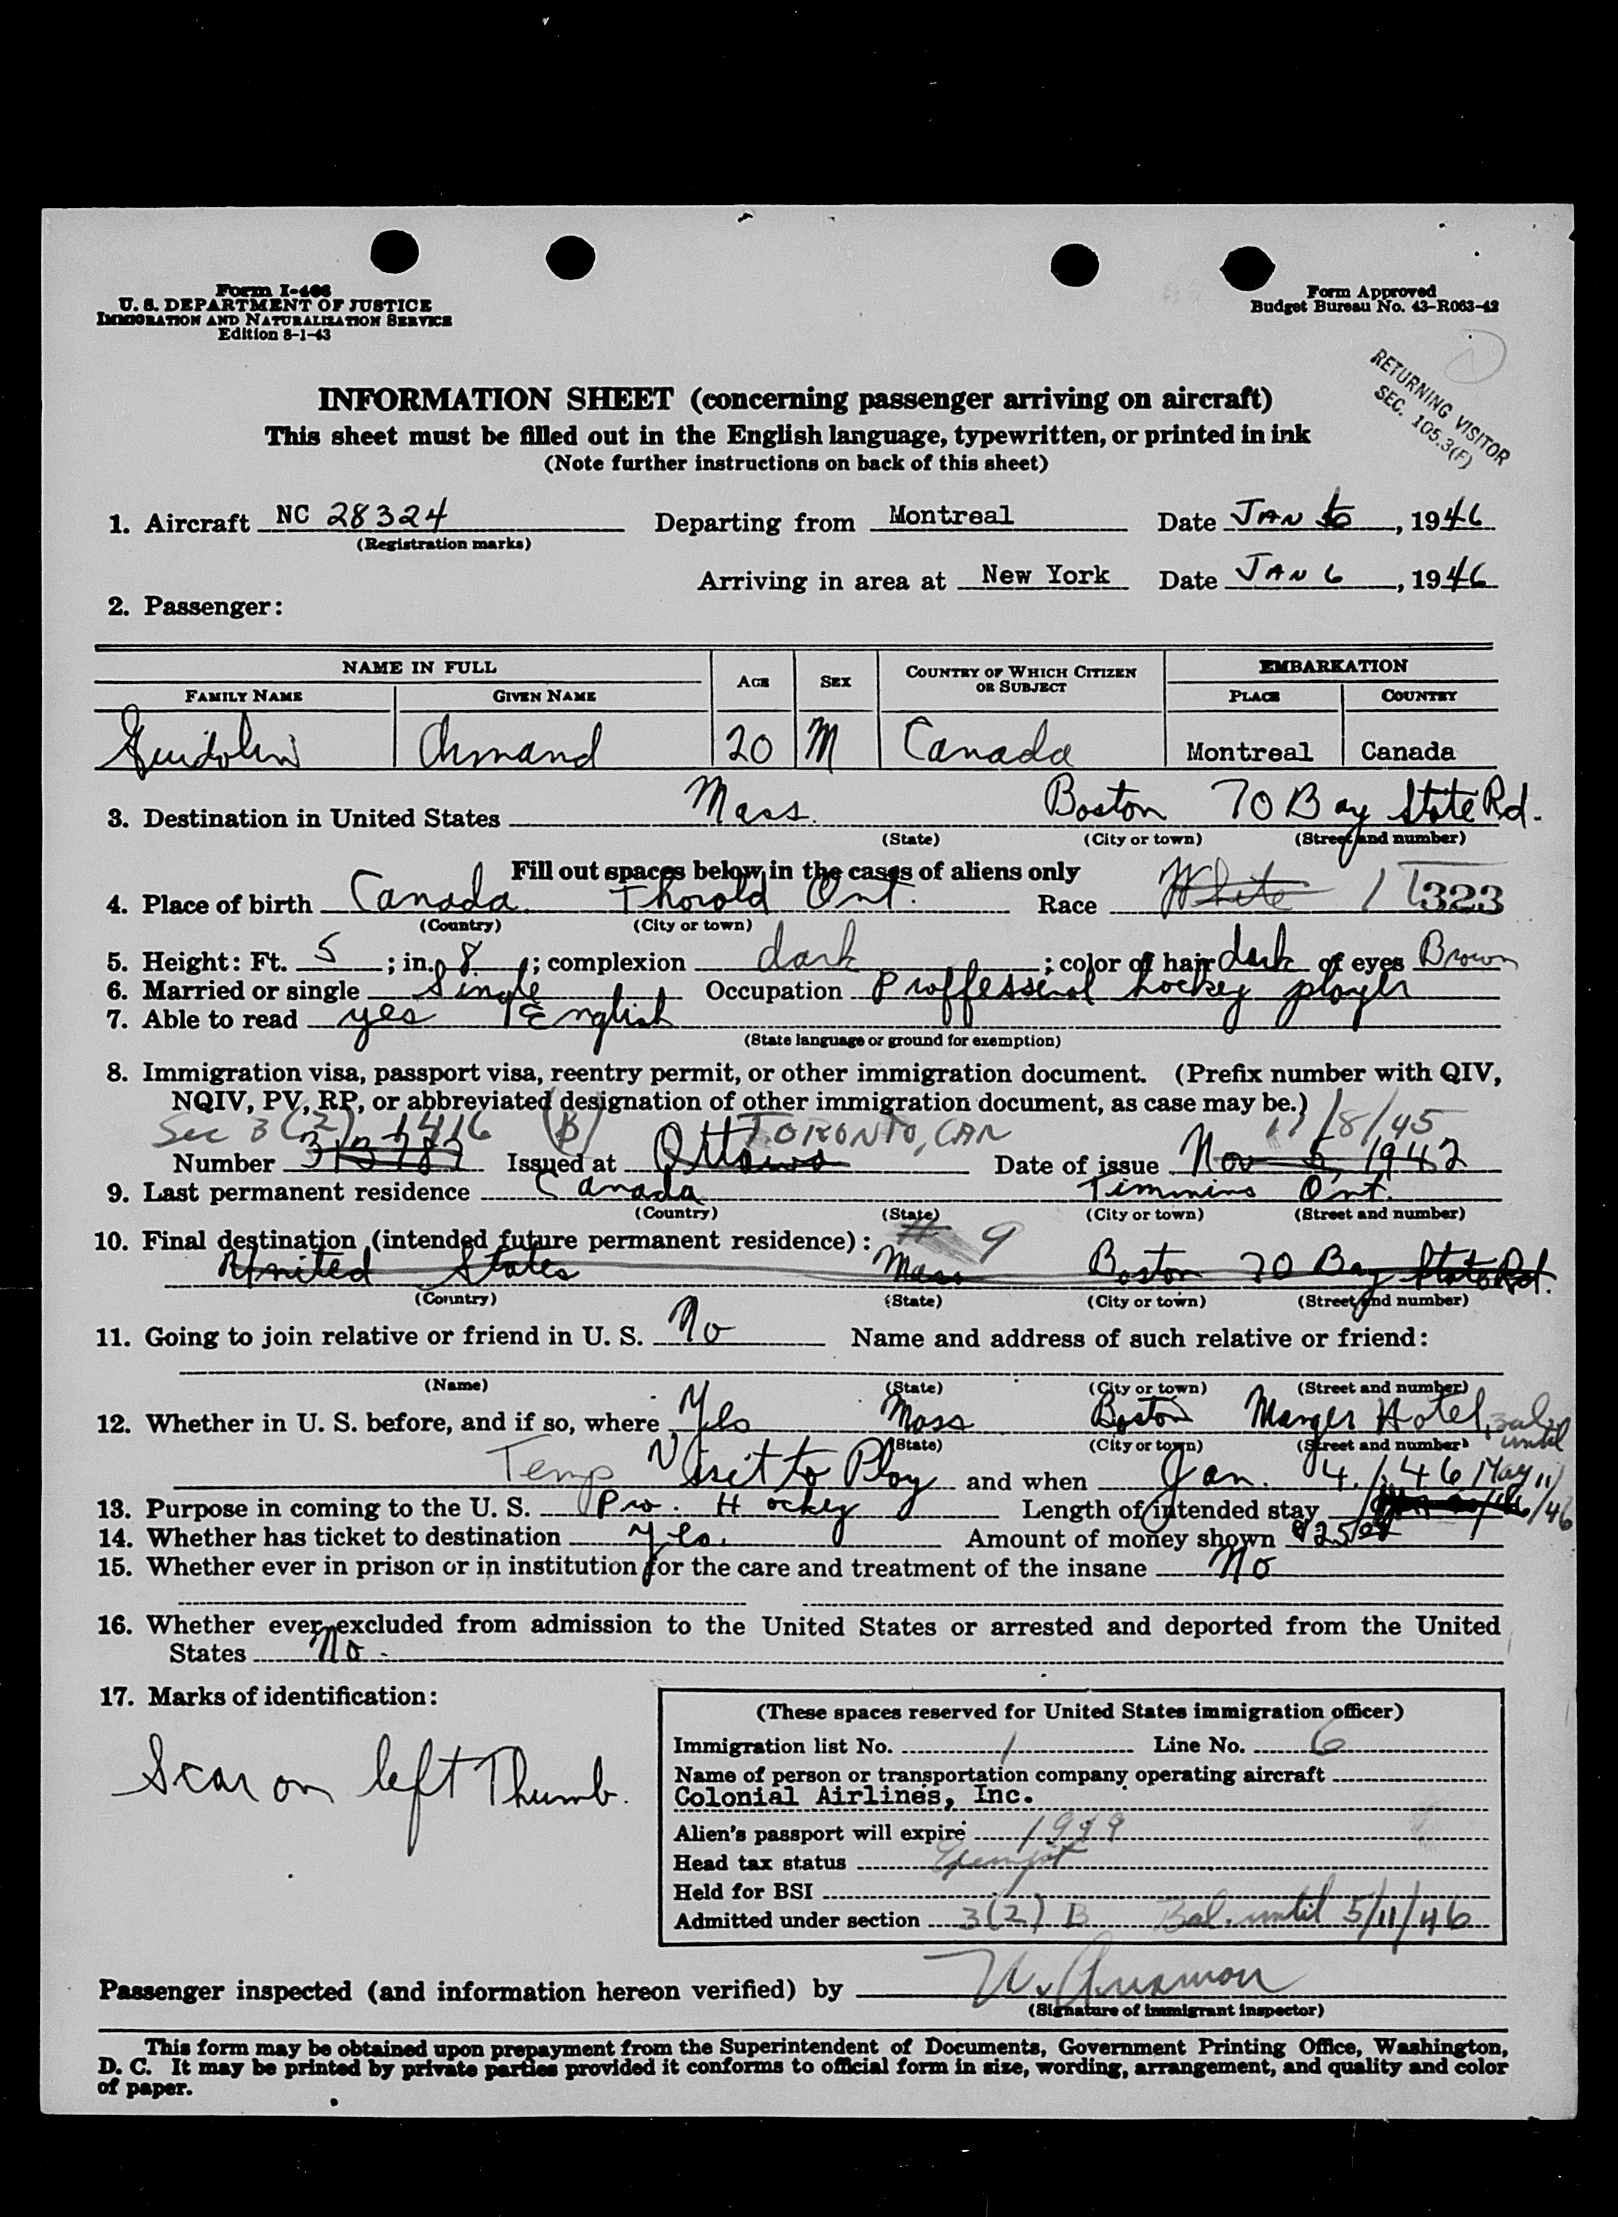 Form I-466
U. S. DEPARTMENT OF JUSTICE
IMMIGRATION AND NATURALIZATION SERVICE
Edition 8-1-43
Form Approved
Budget Bureau No. 43-R063-42
RETURNING VISITOR
SEC. 105.3(F)
INFORMATION SHEET (concerning passenger arriving on aircraft)
This sheet must be filled out in the English language, typewritten, or printed in ink
(Note further instructions on back of this sheet)
1. Aircraft NC 28324 Departing from Montreal Date JAN 6, 1946
(Registration marks)
Arriving in area at New York Date JAN 6, 1946
2. Passenger:
NAME IN FULL AGE SEX COUNTRY OF WHICH CITIZEN OR SUBJECT EMBARKATION
FAMILY NAME GIVEN NAME PLACE COUNTRY
Guidolin Armand 20 M Canada Montreal Canada
3. Destination in United States Mass. Boston 70 Bay State Rd.
(State) (City or town) (Street and number)
Fill out spaces below in the cases of aliens only
4. Place of birth Canada Thorold Ont. Race White 323
(Country) (City or town)
5. Height: Ft. 5; in. 8; complexion dark; color of hair dark of eyes Brown
6. Married or single Single Occupation Proffessional hockey player
7. Able to read yes English
(State language or ground for exemption)
8. Immigration visa, passport visa, reentry permit, or other immigration document. (Prefix number with QIV,
NQIV, PV, RP, or abbreviated designation of other immigration document, as case may be.)
Sec 3(2) 1416 (B) TORONTO, CAN 11/8/45
Number Issued at Ottawa Date of issue Nov 5 1942
9. Last permanent residence Canada Timmins Ont.
(Country) (State) (City or town) (Street and number)
10. Final destination (intended future permanent residence): # 9
United States Mass Boston 70 Bay State Rd.
(Country) (State) (City or town) (Street and number)
11. Going to join relative or friend in U. S. No Name and address of such relative or friend:
(Name) (State) (City or town) (Street and number)
12. Whether in U. S. before, and if so, where Yes Mass Boston Manger Hotel, until
(State) (City or town) (Street and number)
Temp Visit to Play and when Jan. 4, 46 May 11/46
13. Purpose in coming to the U. S. Pro. Hockey Length of intended stay
14. Whether has ticket to destination Yes. Amount of money shown $25
15. Whether ever in prison or in institution for the care and treatment of the insane No
16. Whether ever excluded from admission to the United States or arrested and deported from the United
States No.
17. Marks of identification:
Scar on left Thumb.
(These spaces reserved for United States immigration officer)
Immigration list No. 1 Line No. 6
Name of person or transportation company operating aircraft
Colonial Airlines, Inc.
Alien's passport will expire 1999
Head tax status Exempt
Held for BSI
Admitted under section 3(2) B Bal. until 5/11/46
Passenger inspected (and information hereon verified) by
(Signature of immigrant inspector)
This form may be obtained upon prepayment from the Superintendent of Documents, Government Printing Office, Washington,
D. C. It may be printed by private parties provided it conforms to official form in size, wording, arrangement, and quality and color
of paper.